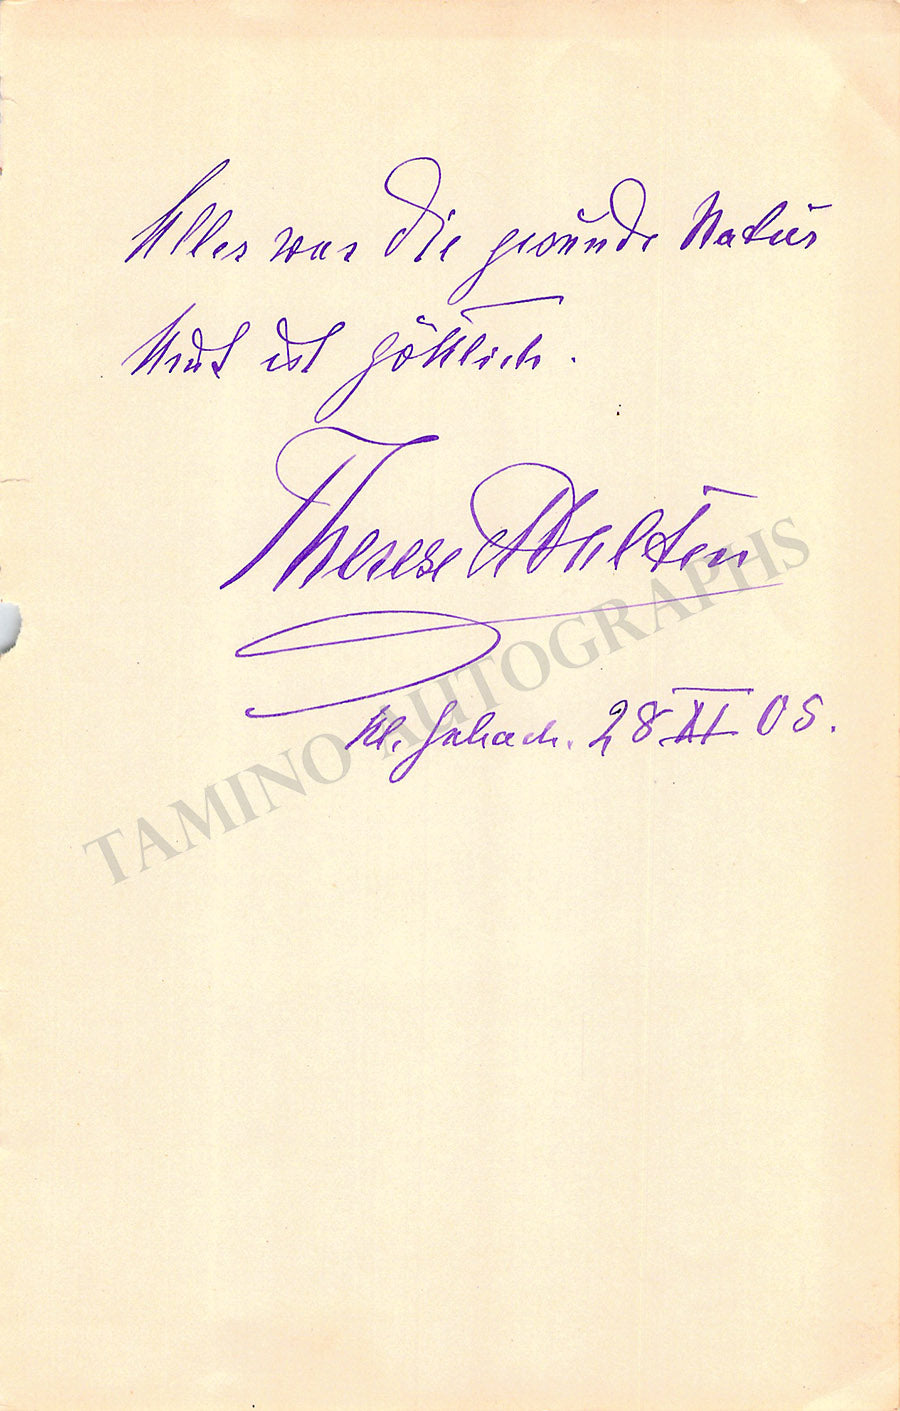 Alles was die gesunde Natur
thut ist göttlich.
Therese Malten
Kl. Zschach. 28 XI 05.
TAMINO AUTOGRAPHS